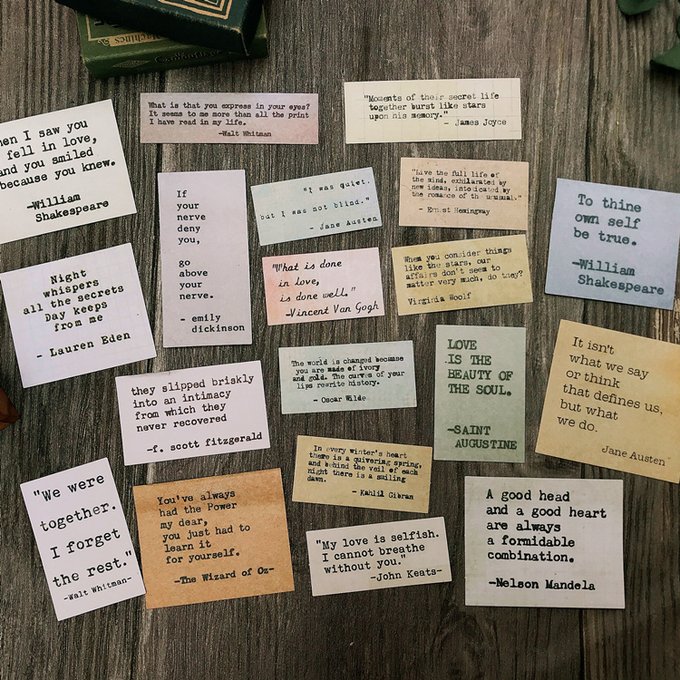 What is that you express in your eyes?
It seems to me more than all the print
I have read in my life.
-Walt Whitman
"Moments of their secret life
together burst like stars
upon his memory."
- James Joyce
hen I saw you
fell in love,
and you smiled
because you knew.
-William
Shakespeare
If
your
nerve
deny
you,
go
above
your
nerve.
- emily
dickinson
"I was quiet,
but I was not blind."
- Jane Austen
"Have the full life of
the mind, exhilarated by
new ideas, intoxicated by
the romance of the unusual."
- Ernest Hemingway
To thine
own self
be true.
-William
Shakespeare
Night
whispers
all the secrets
Day keeps
from me
- Lauren Eden
"What is done
in love,
is done well."
-Vincent Van Gogh
When you consider things
like the stars, our
affairs don't seem to
matter very much, do they?
Virginia Woolf
The world is changed because
you are made of ivory
and gold. The curves of your
lips rewrite history.
- Oscar Wilde
LOVE
IS THE
BEAUTY OF
THE SOUL.
-SAINT
AUGUSTINE
It isn't
what we say
or think
that defines us,
but what
we do.
Jane Austen
they slipped briskly
into an intimacy
from which they
never recovered
-f. scott fitzgerald
In every winter's heart
there is a quivering spring,
and behind the veil of each
night there is a smiling
dawn.
- Kahlil Gibran
"We were
together.
I forget
the rest."
-Walt Whitman-
You've always
had the Power
my dear,
you just had to
learn it
for yourself.
-The Wizard of Oz-
"My love is selfish.
I cannot breathe
without you."
-John Keats-
A good head
and a good heart
are always
a formidable
combination.
-Nelson Mandela